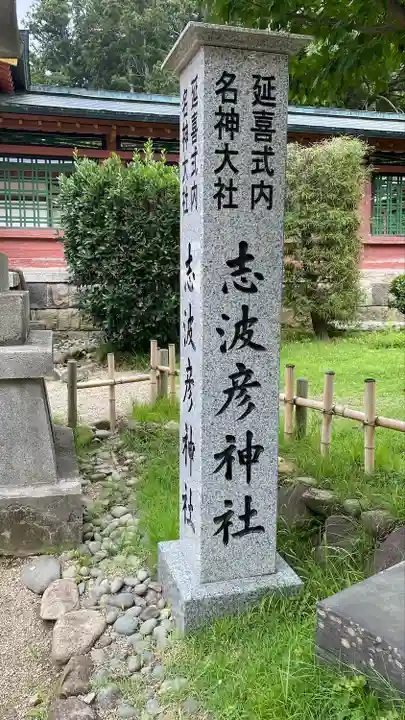 延喜式内
名神大社
志波彦神社
延喜式内
名神大社
志波彦神社